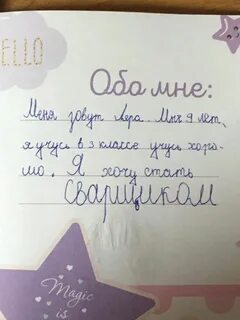 ELLO
Обо мне:
Меня зовут Лера. Мне 9 лет,
я учусь в 3 классе учусь хоро-
шо. Я хочу стать
Сварщиком
Magic
is